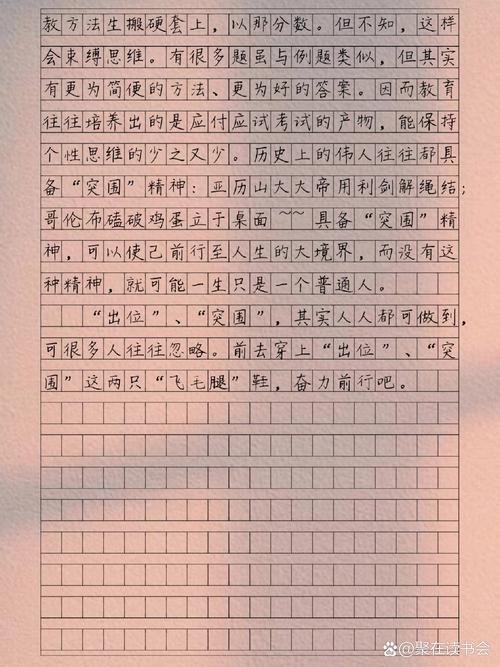 教方法生搬硬套上，以那分数。但不知，这样
会束缚思维。有很多题虽与例题类似，但其实
有更为简便的方法、更为好的答案。因而教育
往往培养出的是应付应试考试的产物，能保持
个性思维的少之又少。历史上的伟人往往都具
备“突围”精神：亚历山大大帝用利剑解绳结；
哥伦布磕破鸡蛋立于桌面~~具备“突围”精
神，可以使己前行至人生的大境界，而没有这
种精神，就可能一生只是一个普通人。
“出位”、“突围”，其实人人都可做到，
可很多人往往忽略。前去穿上“出位”、“突
围”这两只“飞毛腿”鞋，奋力前行吧。
聚在读书会